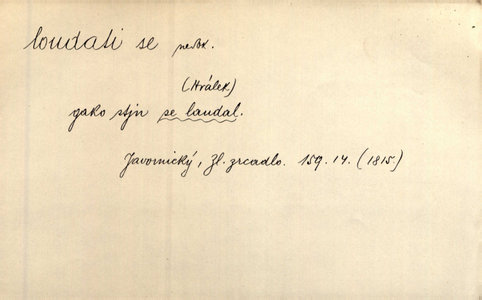 loudati se nedok.
(Hrálek)
gako stjn se laudal.
Javornický, Zl. zrcadlo. 159. 14. (1815.)